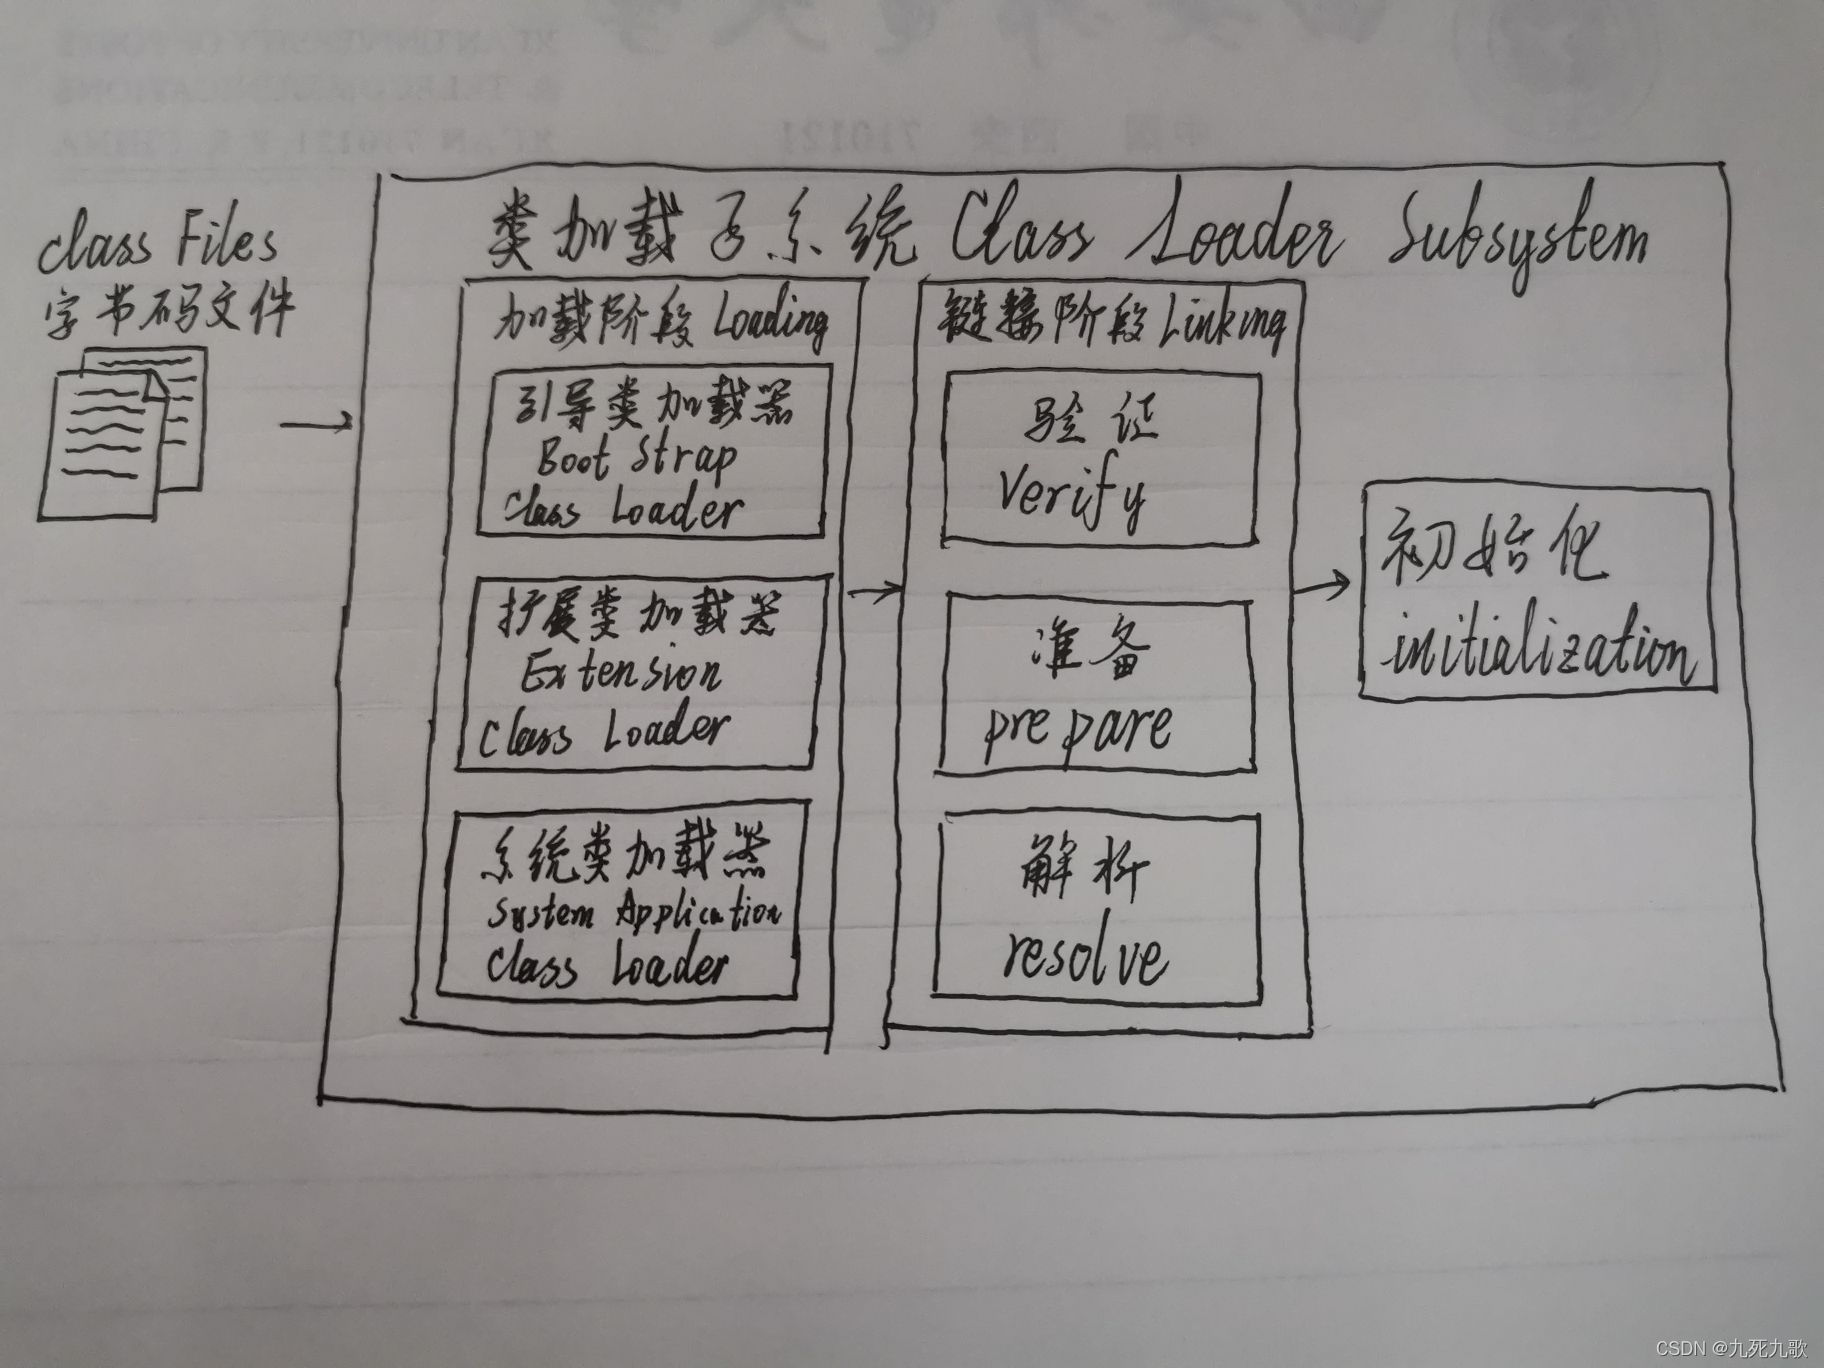 class Files
字节码文件
类加载子系统 Class Loader Subsystem
加载阶段 Loading
引导类加载器
Boot Strap
Class Loader
扩展类加载器
Extension
Class Loader
系统类加载器
System Application
Class Loader
链接阶段 Linking
验证
Verify
准备
prepare
解析
resolve
初始化
initialization
CSDN @九死九歌